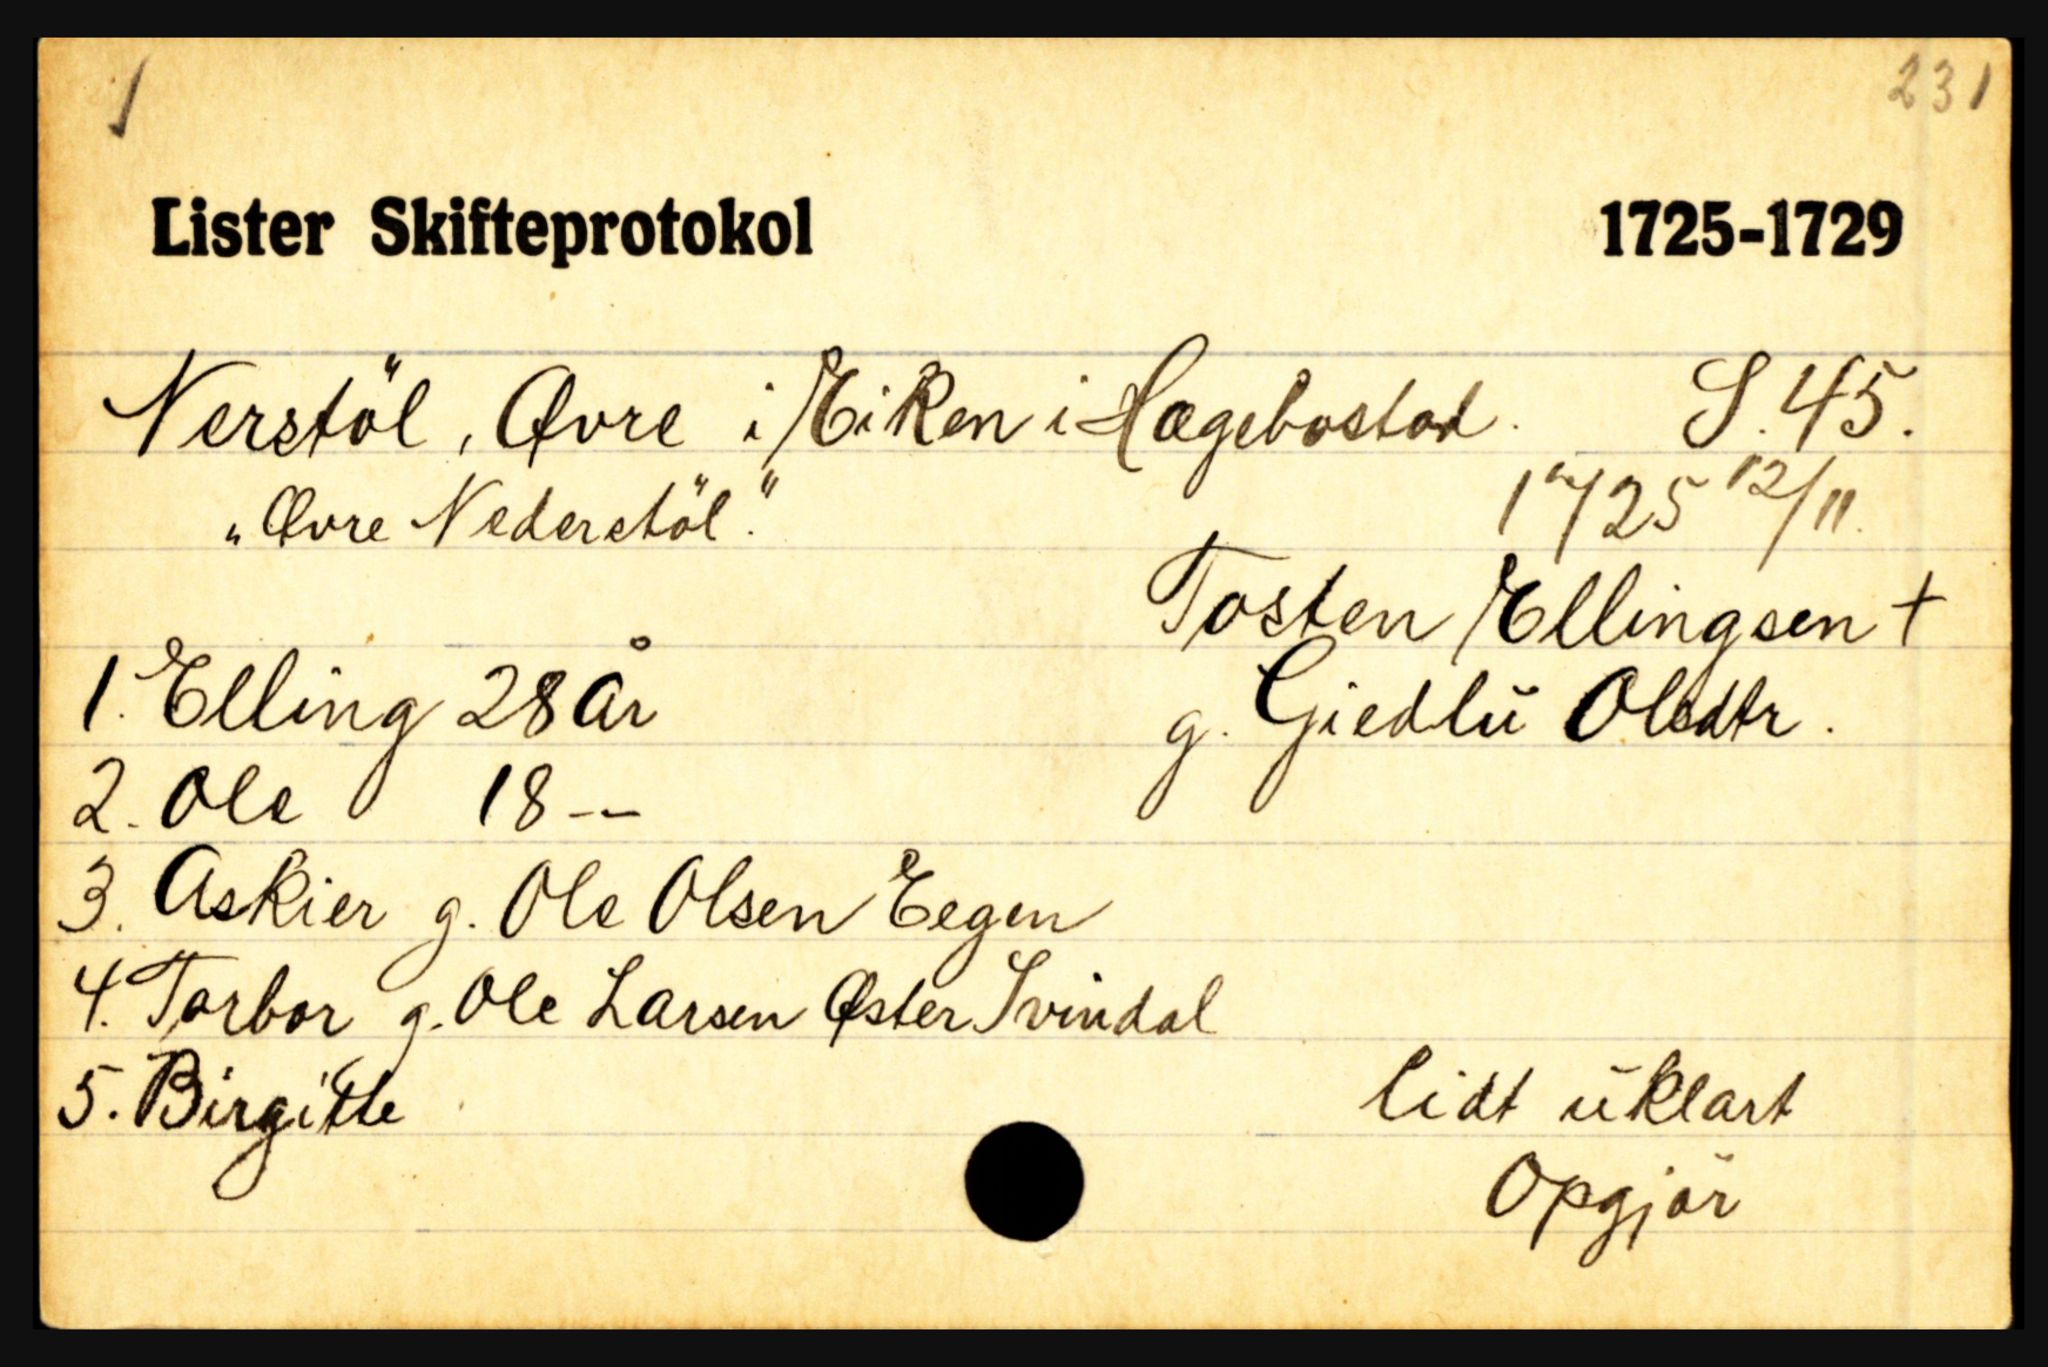 1 231
Lister Skifteprotokol 1725-1729
Nerstöl, Øvre i Eiken i Hægebostad. S. 45.
„Øvre Nederstöl." 1725 12/11.
Tosten Ellingsen +
1. Elling 28 år g. Giedlŭ Olsdtr.
2. Ole 18 --
3. Askier g. Ole Olsen Eegen
4. Torbor g. Ole Larsen Øster Svindal
5. Birgitte lidt ŭklart
Opgjör